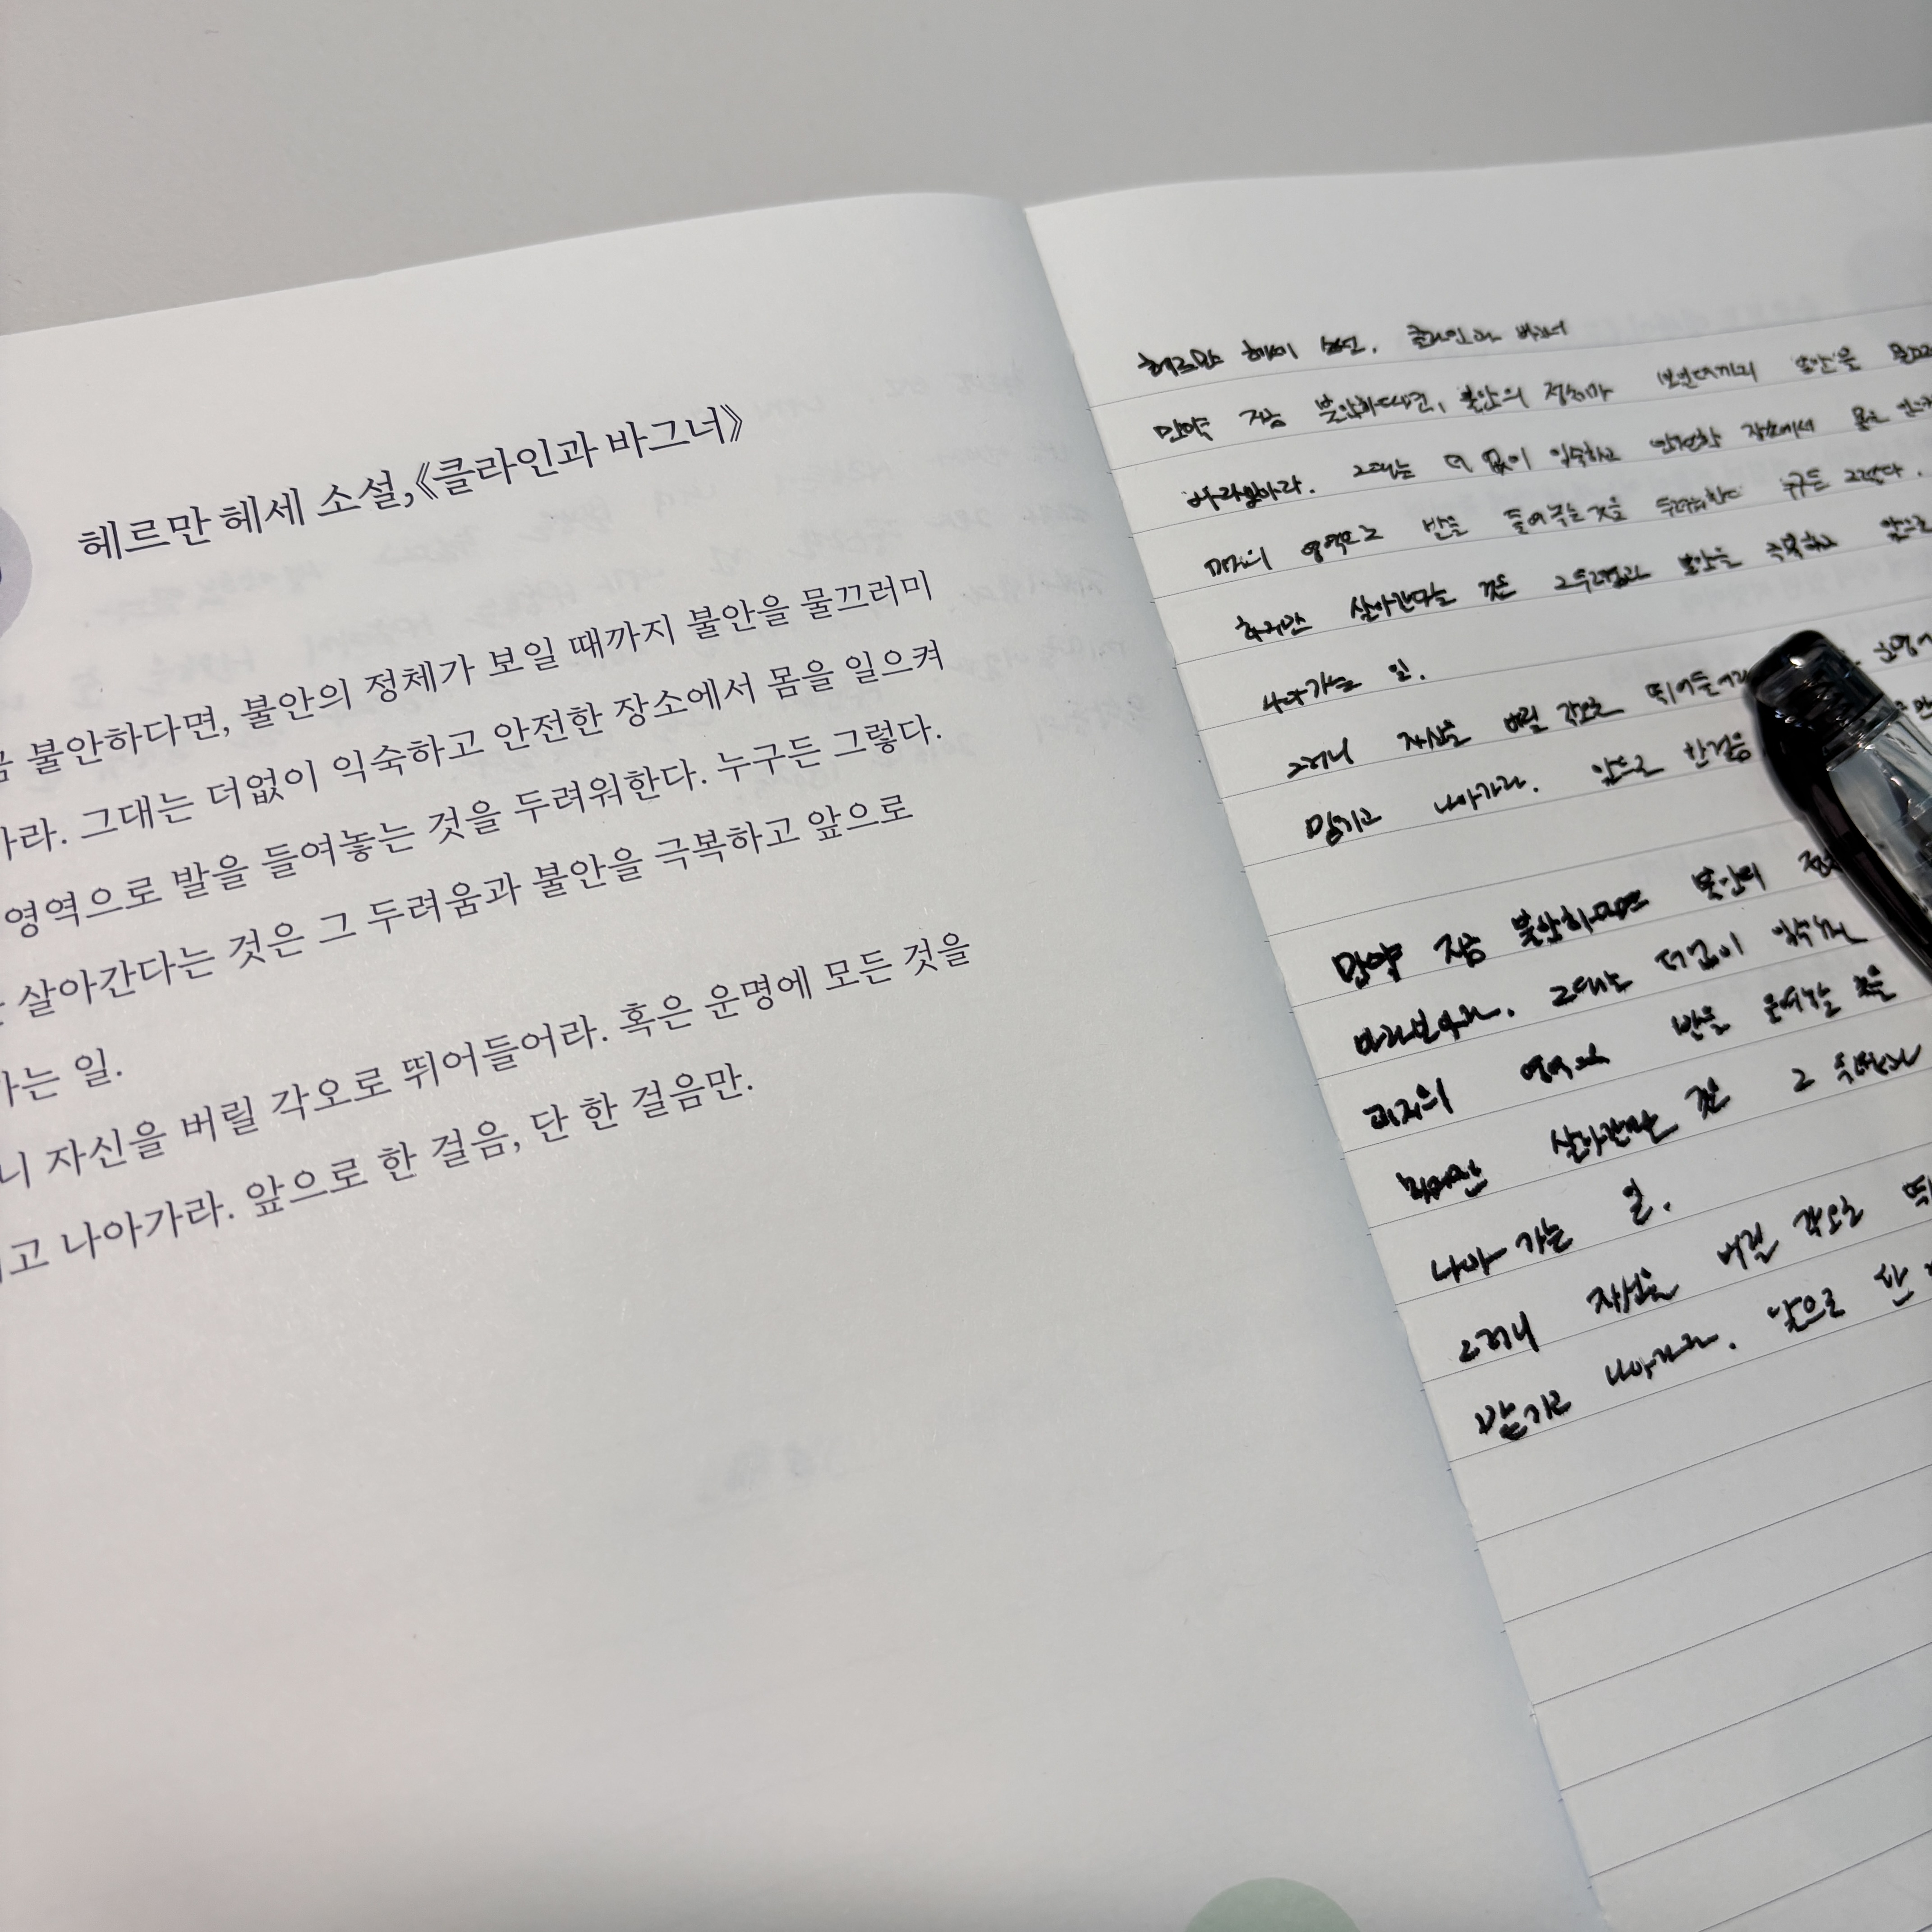 헤르만 헤세 소설,《클라인과 바그너》
불안하다면, 불안의 정체가 보일 때까지 불안을 물끄러미
라. 그대는 더없이 익숙하고 안전한 장소에서 몸을 일으켜
영역으로 발을 들여놓는 것을 두려워한다. 누구든 그렇다.
살아간다는 것은 그 두려움과 불안을 극복하고 앞으로
가는 일.
니 자신을 버릴 각오로 뛰어들어라. 혹은 운명에 모든 것을
고 나아가라. 앞으로 한 걸음, 단 한 걸음만.
헤르만 헤세 소설, 클라인과 바그너
만약 지금 불안하다면, 불안의 정체가 보일때까지 불안을
바라보아라. 그대는 더 없이 익숙하고 안전한 장소에서 몸을
미지의 영역으로 발을 들여놓는 것을 두려워한다 누구든 그렇다.
하지만 살아간다는 것은 그 두려움과 불안을 극복하고 앞으로
나아가는 일.
그러니 자신을 버릴 각오로 뛰어들어라
맡기고 나아가라. 앞으로 한 걸음
만약 지금 불안하다면 불안의
바라보아라. 그대는 더없이
미지의 영역으로 발을
하지만 살아간다는 것은 그
나아가는 일.
그러니 자신을 버릴 각오로
맡기고 나아가라. 앞으로 한